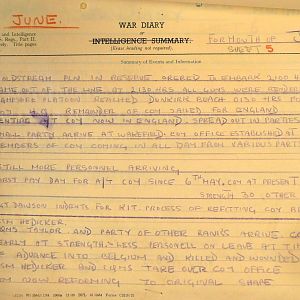 JUNE.
and Intelligence
S. Regs., Part II.
tively. Title pages
WAR DIARY
OF
INTELLIGENCE SUMMARY.
(Erase heading not required).
FOR MONTH OF J
SHEET 5
Summary of Events and Information
OLDSTREAM PLN IN RESERVE ORDERED TO EMBARK 2100 H
CAME OUT OF THE LINE AT 2130 HRS ALL GUNS WERE RENDER
PLATOON REACHED DUNKIRK BEACH 0130 HRS
REMAINDER OF COY SAILED FOR ENGLAND
COY NOW IN ENGLAND. SPREAD OUT IN PARTIES
SMALL PARTY ARRIVE AT WAKEFIELD COY OFFICE ESTABLISHED
MEMBERS OF COY COMING IN ALL DAY FROM VARIOUS PART
STILL MORE PERSONNEL ARRIVING
FIRST PAY DAY FOR A/T COY SINCE 6TH MAY. COY AT PRESENT
STRENGTH 30 OTHER
SGT DAWSON INDENTS FOR KIT. PROCESS OF REFITTING COY
CSM HEDICKER.
QMS TAYLOR. AND PARTY OF OTHER RANKS ARRIVE. CO
NEARLY AT STRENGTH - LESS PERSONELL ON LEAVE AT TIM
OF ADVANCE INTO BELGIUM AND KILLED AND WOUNDED
CSM HEDICKER AND CQMS TAKE OVER COY OFFICE
COY NOW REFORMING TO ORIGINAL SHAPE